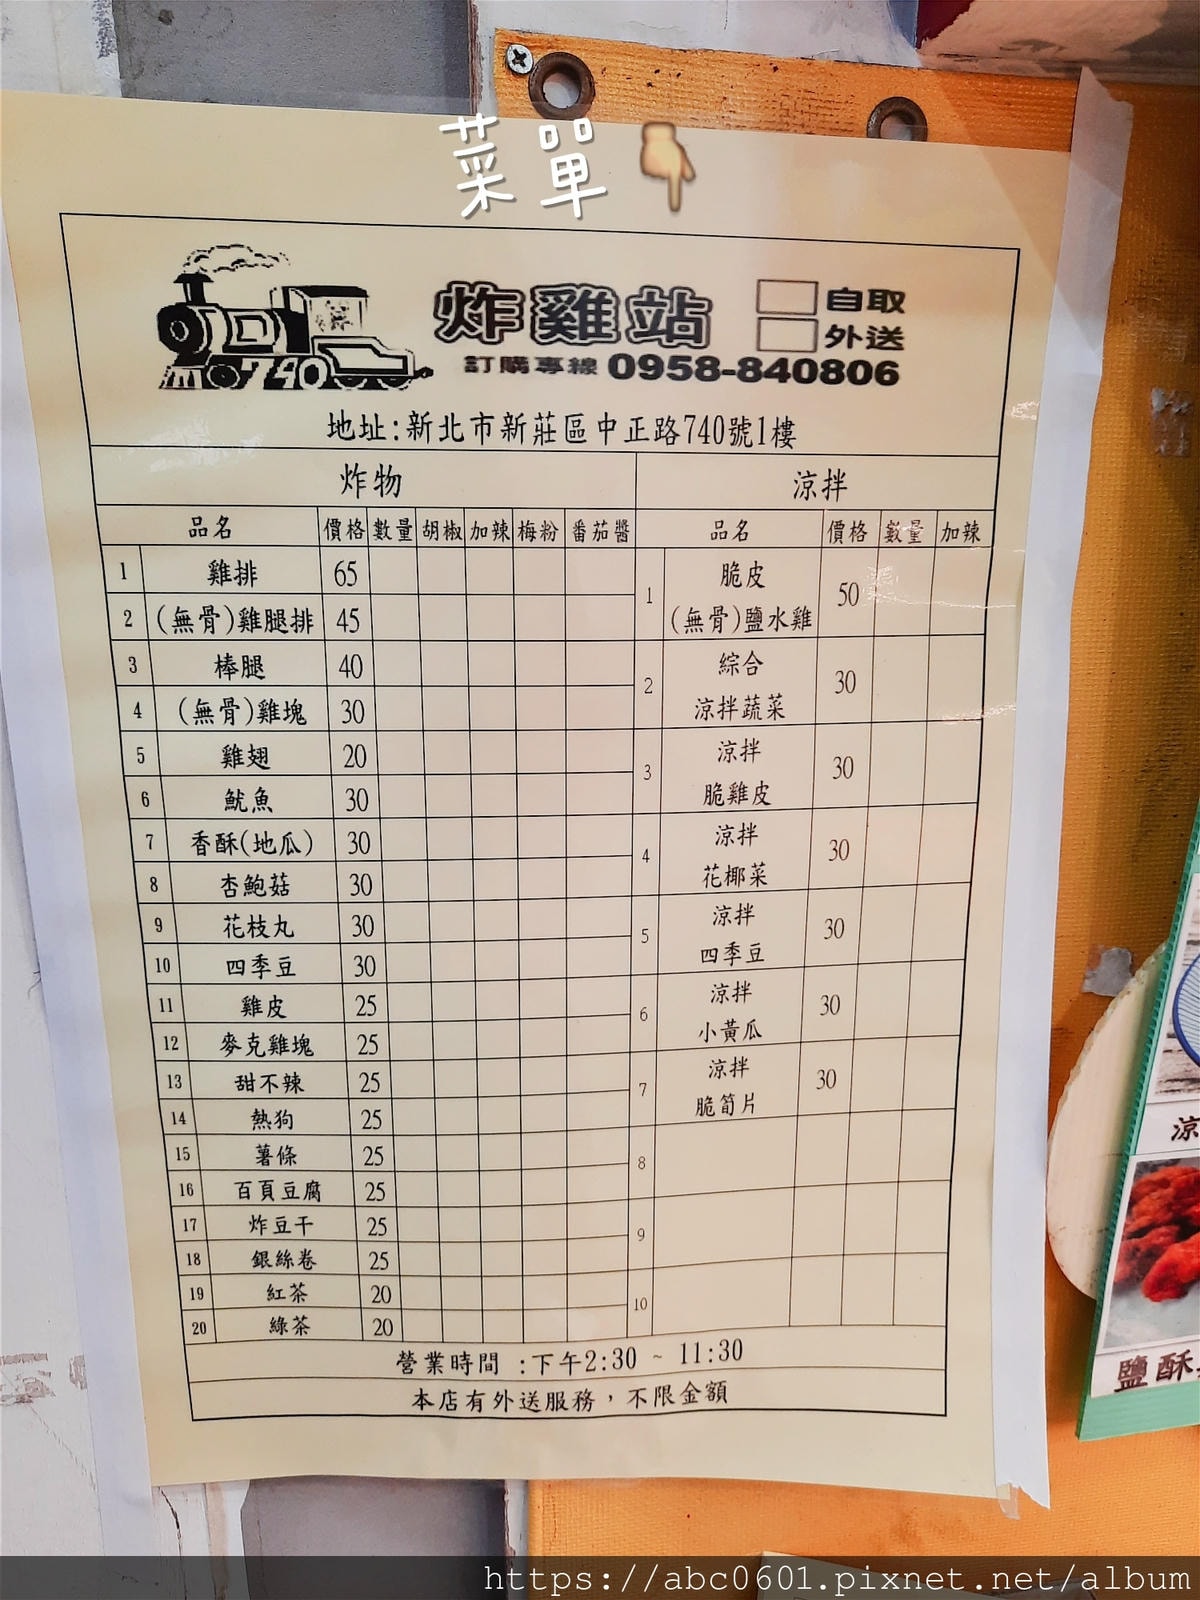 菜單
炸雞站
自取
外送
訂購專線 0958-840806
740
地址:新北市新莊區中正路740號1樓
炸物
品名 價格 數量 胡椒 加辣 梅粉 番茄醬
1 雞排 65
2 (無骨)雞腿排 45
3 棒腿 40
4 (無骨)雞塊 30
5 雞翅 20
6 魷魚 30
7 香酥(地瓜) 30
8 杏鮑菇 30
9 花枝丸 30
10 四季豆 30
11 雞皮 25
12 麥克雞塊 25
13 甜不辣 25
14 熱狗 25
15 薯條 25
16 百頁豆腐 25
17 炸豆干 25
18 銀絲卷 25
19 紅茶 20
20 綠茶 20
涼拌
品名 價格 數量 加辣
1 脆皮
(無骨)鹽水雞 50
2 綜合
涼拌蔬菜 30
3 涼拌
脆雞皮 30
4 涼拌
花椰菜 30
5 涼拌
四季豆 30
6 涼拌
小黃瓜 30
7 涼拌
脆筍片 30
8
9
10
營業時間 :下午2:30 ~ 11:30
本店有外送服務,不限金額
涼
鹽酥
https://abc0601.pixnet.net/album